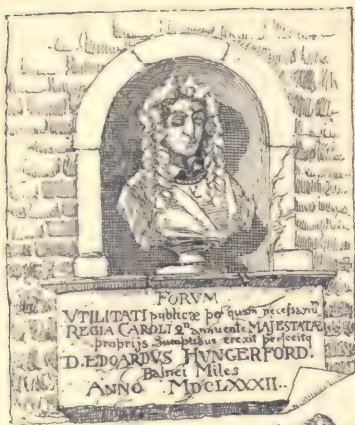 FORVM
VTILITATI publicæ per quam necessariũ
REGIA CAROLI 2di annuente MAJESTATE
proprijs Sumptibus erexit perfecitq
D. EDOARDVS HVNGERFORD.
Balnei Miles
ANNO MDCLXXXII..